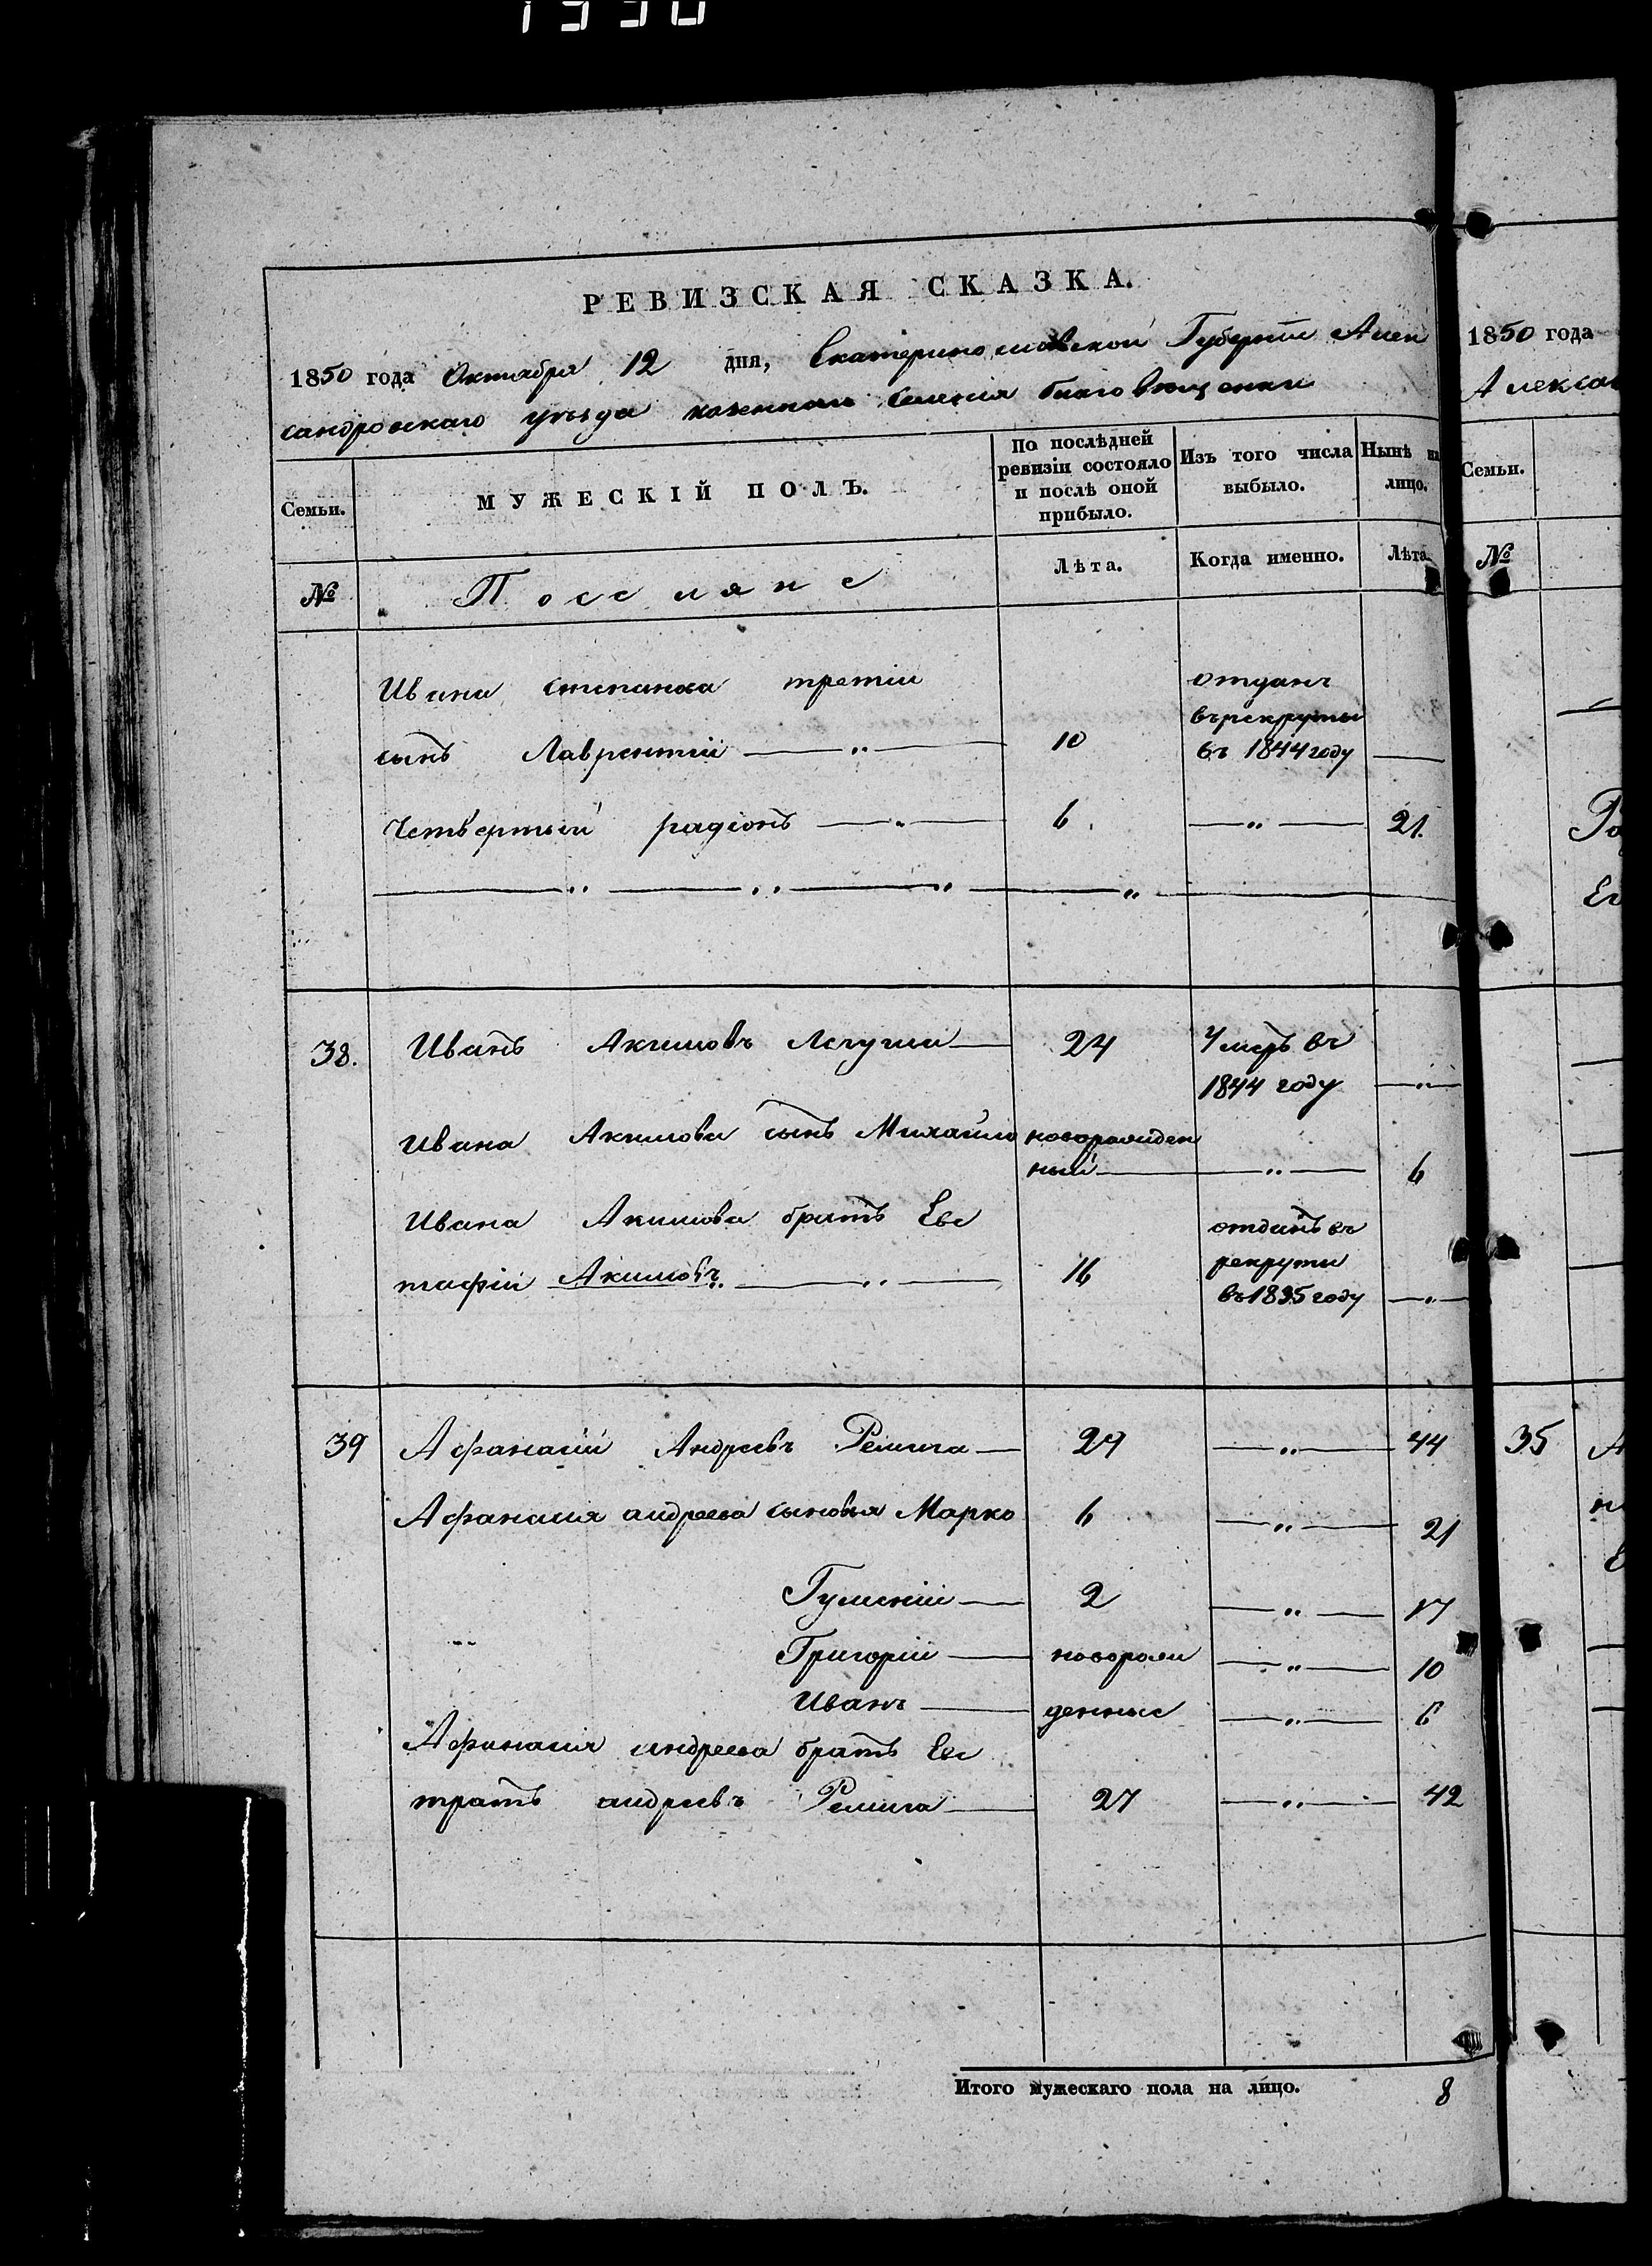 1990
РЕВИЗСКАЯ СКАЗКА.
1850 года Октября 12 дня, Екатеринославской Губернии Алек
сандровскаго уѣзда казеннаго Селенія благовѣщенки
Семьи.
МУЖЕСКІЙ ПОЛЪ.
По послѣдней ревизіи состояло и послѣ оной прибыло.
Изъ того числа выбыло.
Нынѣ на лицо.
№
Поселяне
Лѣта.
Когда именно.
Лѣта.
Ивана третій отданъ
въ рекруты
сынъ Лаврентій — " — 10 въ 1844 году —
Четвертый радіонъ — " — 6. — " — 21.
38. Иванъ Акимовъ — 24 Умеръ въ
1844 году — " —
Ивана Акимова сынъ Михайло новорожден
ный — " — 6
Ивана Акимова братъ Евс
тафій Акимовъ. — " — 16 отданъ въ
рекруты
въ 1835 году — " —
39 Афанасій Андреевъ — 29 — " — 44
Афанасія андреева сыновья Марко 6 — " — 21
2 — " — 17
Григорій — новорож — " — 10
Иванъ — денные — " — 6
Афанасія андреева братъ Евс
тратъ андреевъ — 27 — " — 42
Итого мужескаго пола на лицо. 8
1850 года
Алексан
Семьи.
№
35